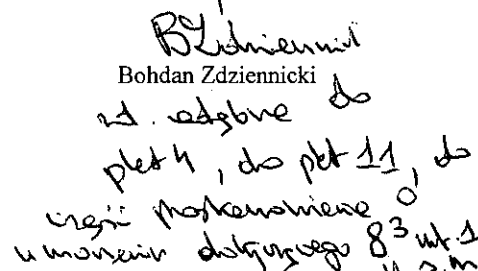 BZdziennicki
Bohdan Zdziennicki
zd. odrębne do
pkt 4, do pkt 11, do
części postanowienia o
umorzeniu dotyczącego § 3 ust. 1